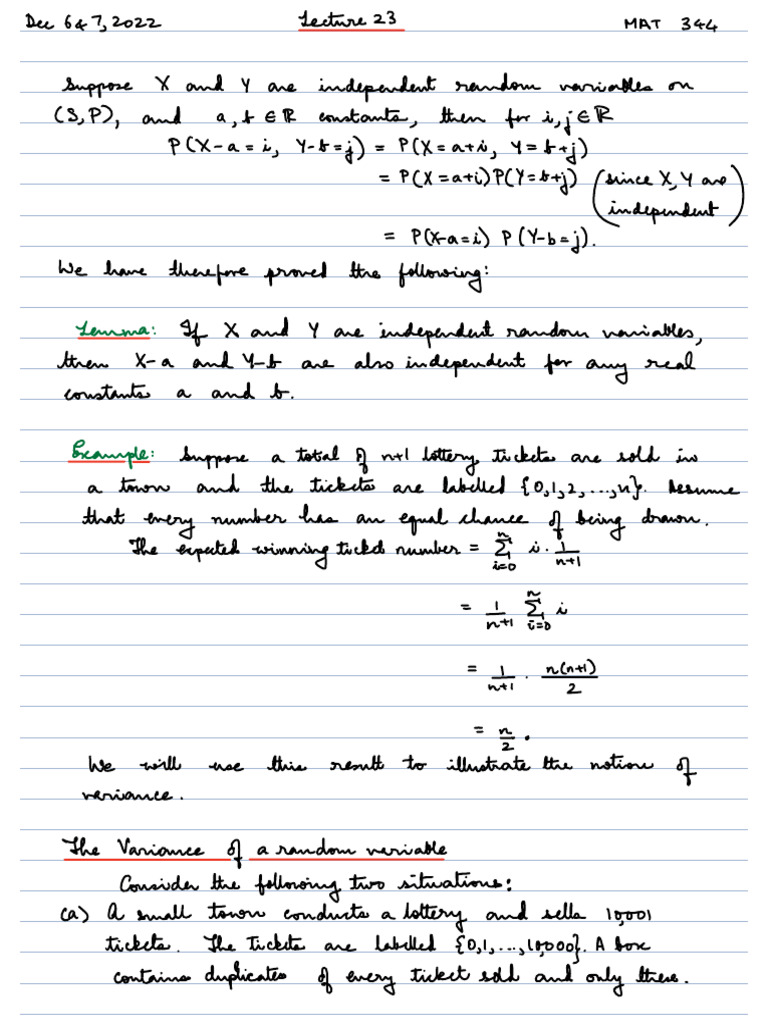 Dec 6 & 7, 2022 Lecture 23 MAT 344
Suppose X and Y are independent random variables on
(S,P), and a, b ∈ ℝ constants, then for i, j ∈ ℝ
P(X-a = i, Y-b = j) = P(X = a+i, Y = b+j)
= P(X = a+i) P(Y = b+j) (since X, Y are
independent)
= P(X-a = i) P(Y-b = j).
We have therefore proved the following:
Lemma: If X and Y are independent random variables,
then X-a and Y-b are also independent for any real
constants a and b.
Example: Suppose a total of n+1 lottery tickets are sold in
a town and the tickets are labelled {0,1,2,...,n}. Assume
that every number has an equal chance of being drawn.
The expected winning ticket number = \sum_{i=0}^{n} i · \frac{1}{n+1}
= \frac{1}{n+1} \sum_{i=0}^{n} i
= \frac{1}{n+1} · \frac{n(n+1)}{2}
= \frac{n}{2}.
We will use this result to illustrate the notion of
variance.
The Variance of a random variable
Consider the following two situations:
(a) A small town conducts a lottery and sells 10,001
tickets. The tickets are labelled {0,1,...,10,000}. A box
contains duplicates of every ticket sold and only these.